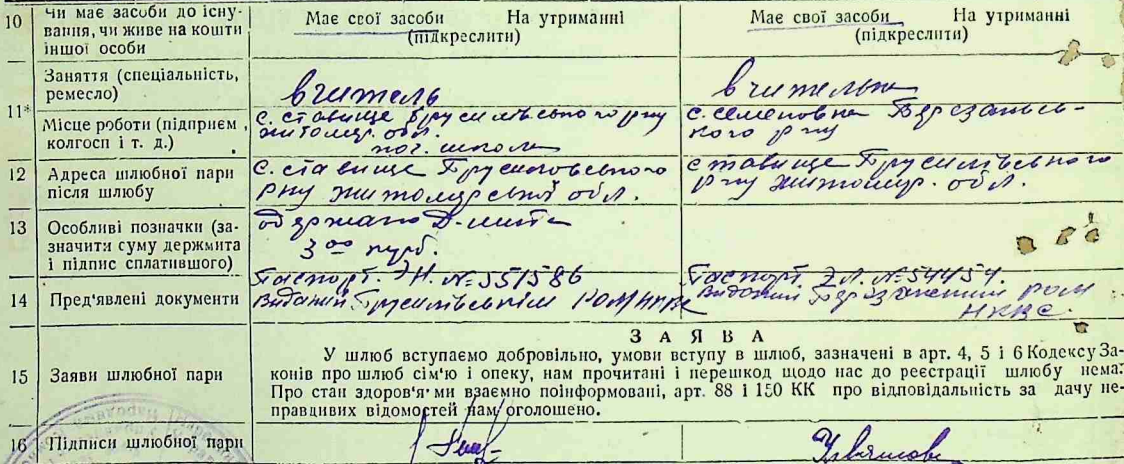 10 Чи має засоби до існування, чи живе на кошти іншої особи
Має свої засоби На утриманні
(підкреслити)
Має свої засоби На утриманні
(підкреслити)
11* Заняття (спеціальність, ремесло)
вчитель
вчителька
Місце роботи (підприєм, колгосп і т. д.)
с. ставище Брусилівського р-ну
житомир. обл.
поч. школа
с. семеновка Березансь-
кого р-ну
12 Адреса шлюбної пари після шлюбу
с. ставище Брусиловського
р-ну житомирської обл.
ставище Брусилівського
р-ну житомир. обл.
13 Особливі позначки (зазначити суму держмита і підпис сплатившого)
одержано Д-мита
3 00 курб.
14 Пред'явлені документи
Паспорт. ЭН. № 551586
Виданий Брусилівським РОМ НКВС
Паспорт ЭЛ. № 54454.
Виданий Березанським РОМ
НКВС.
15 Заяви шлюбної пари
ЗАЯВА
У шлюб вступаємо добровільно, умови вступу в шлюб, зазначені в арт. 4, 5 і 6 Кодексу За-
конів про шлюб сім'ю і опеку, нам прочитані і перешкод щодо нас до реєстрації шлюбу нема.
Про стан здоров'я ми взаємно поінформовані, арт. 88 і 150 КК про відповідальність за дачу не-
правдивих відомостей нам оголошено.
16 Підписи шлюбної пари